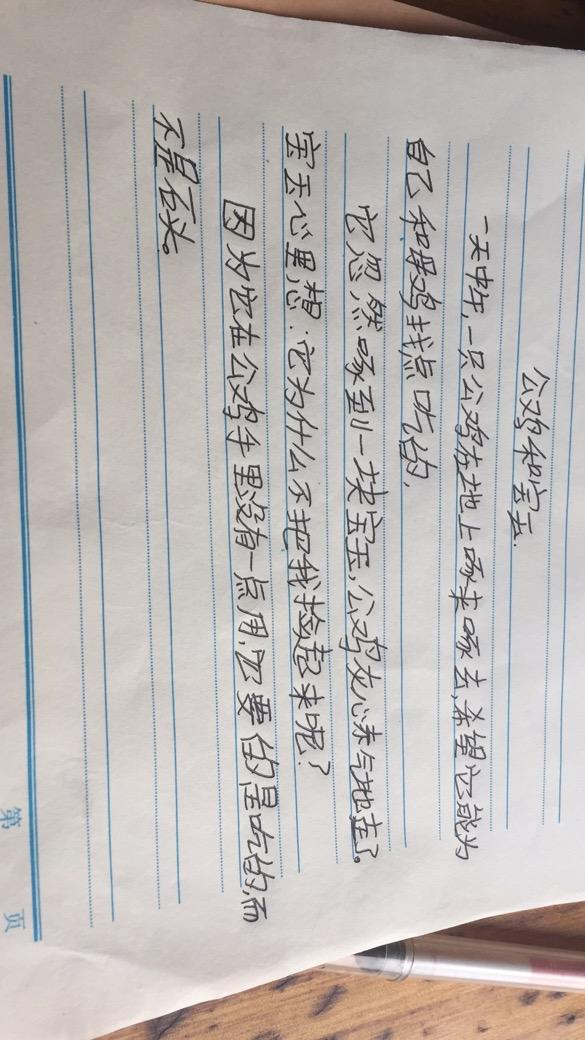 公鸡和宝玉.
一天中午,一只公鸡在地上啄来啄去,希望它能为
自己和母鸡找点吃的.
它忽然啄到一块宝玉,公鸡灰心丧气地走了。
宝玉心里想:它为什么不把我捡起来呢?
因为它在公鸡手里没有一点用,它要的是吃的,而
不是石头。
第 页